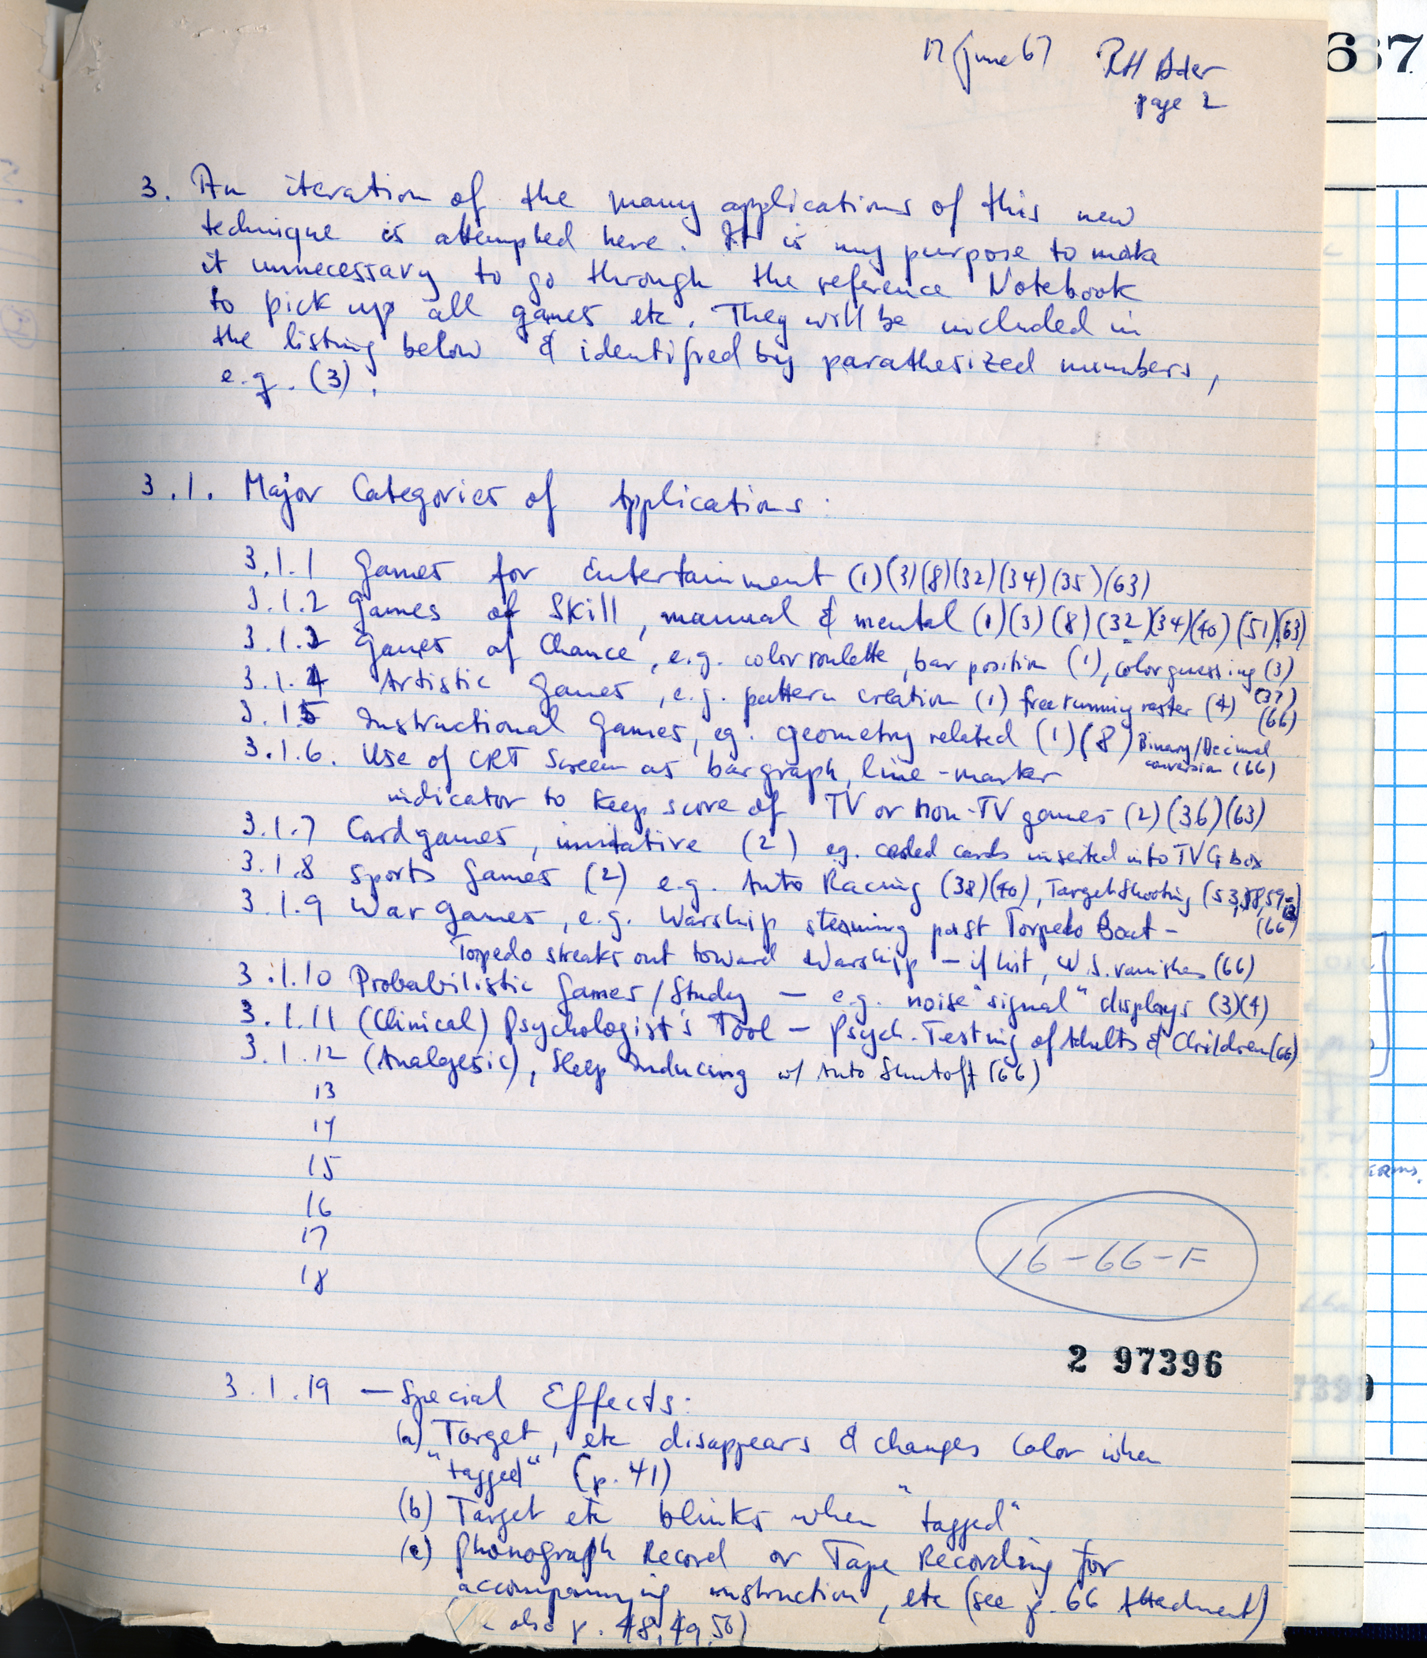 12 June 67 RH Baer
page 2
67
3. An iteration of the many applications of this new
technique is attempted here. It is my purpose to make
it unnecessary to go through the reference Notebook
to pick up all games etc. They will be included in
the listing below & identified by parathesized numbers,
e.g. (3).
3.1. Major Categories of Applications:
3.1.1 Games for Entertainment (1)(3)(8)(32)(34)(35)(63)
3.1.2 Games of Skill, manual & mental (1)(3)(8)(32)(34)(40)(51)(63)
3.1.3 Games of Chance, e.g. color roulette, bar position (1), color guessing (3)
(37)
3.1.4 Artistic Games, e.g. pattern creation (1) free running raster (4) (66)
3.1.5 Instructional Games, eg. geometry related (1)(8) Binary/Decimal
conversion (66)
3.1.6. Use of CRT Screen as bar graph, line-marker
indicator to keep score of TV or non-TV games (2)(36)(63)
3.1.7 Card games, imitative (2) eg. coded cards inserted into TVG box
3.1.8 Sports Games (2) e.g. Auto Racing (38)(40), Target Shooting (53,58,59-
(66)
3.1.9 War Games, e.g. Warship steaming past Torpedo Boat -
Torpedo streaks out toward Warship - if hit, W.S. vanishes (66)
3.1.10 Probabilistic Games/Study - e.g. noise "signal" displays (3)(4)
3.1.11 (Clinical) Psychologist's Tool - Psych. Testing of Adults & Children (66)
3.1.12 (Analgesic), Sleep Inducing w/ Auto Shutoff (66)
13
14
15
16
17
18
16-66-F
2 97396
3.1.19 - Special Effects:
(a) Target, etc disappears & changes Color when
"tagged" (p. 41)
(b) Target etc blinks when "tagged"
(c) Phonograph Record or Tape Recording for
accompanying instruction, etc (see p. 66 Attachment)
also p. 48, 49, 50)